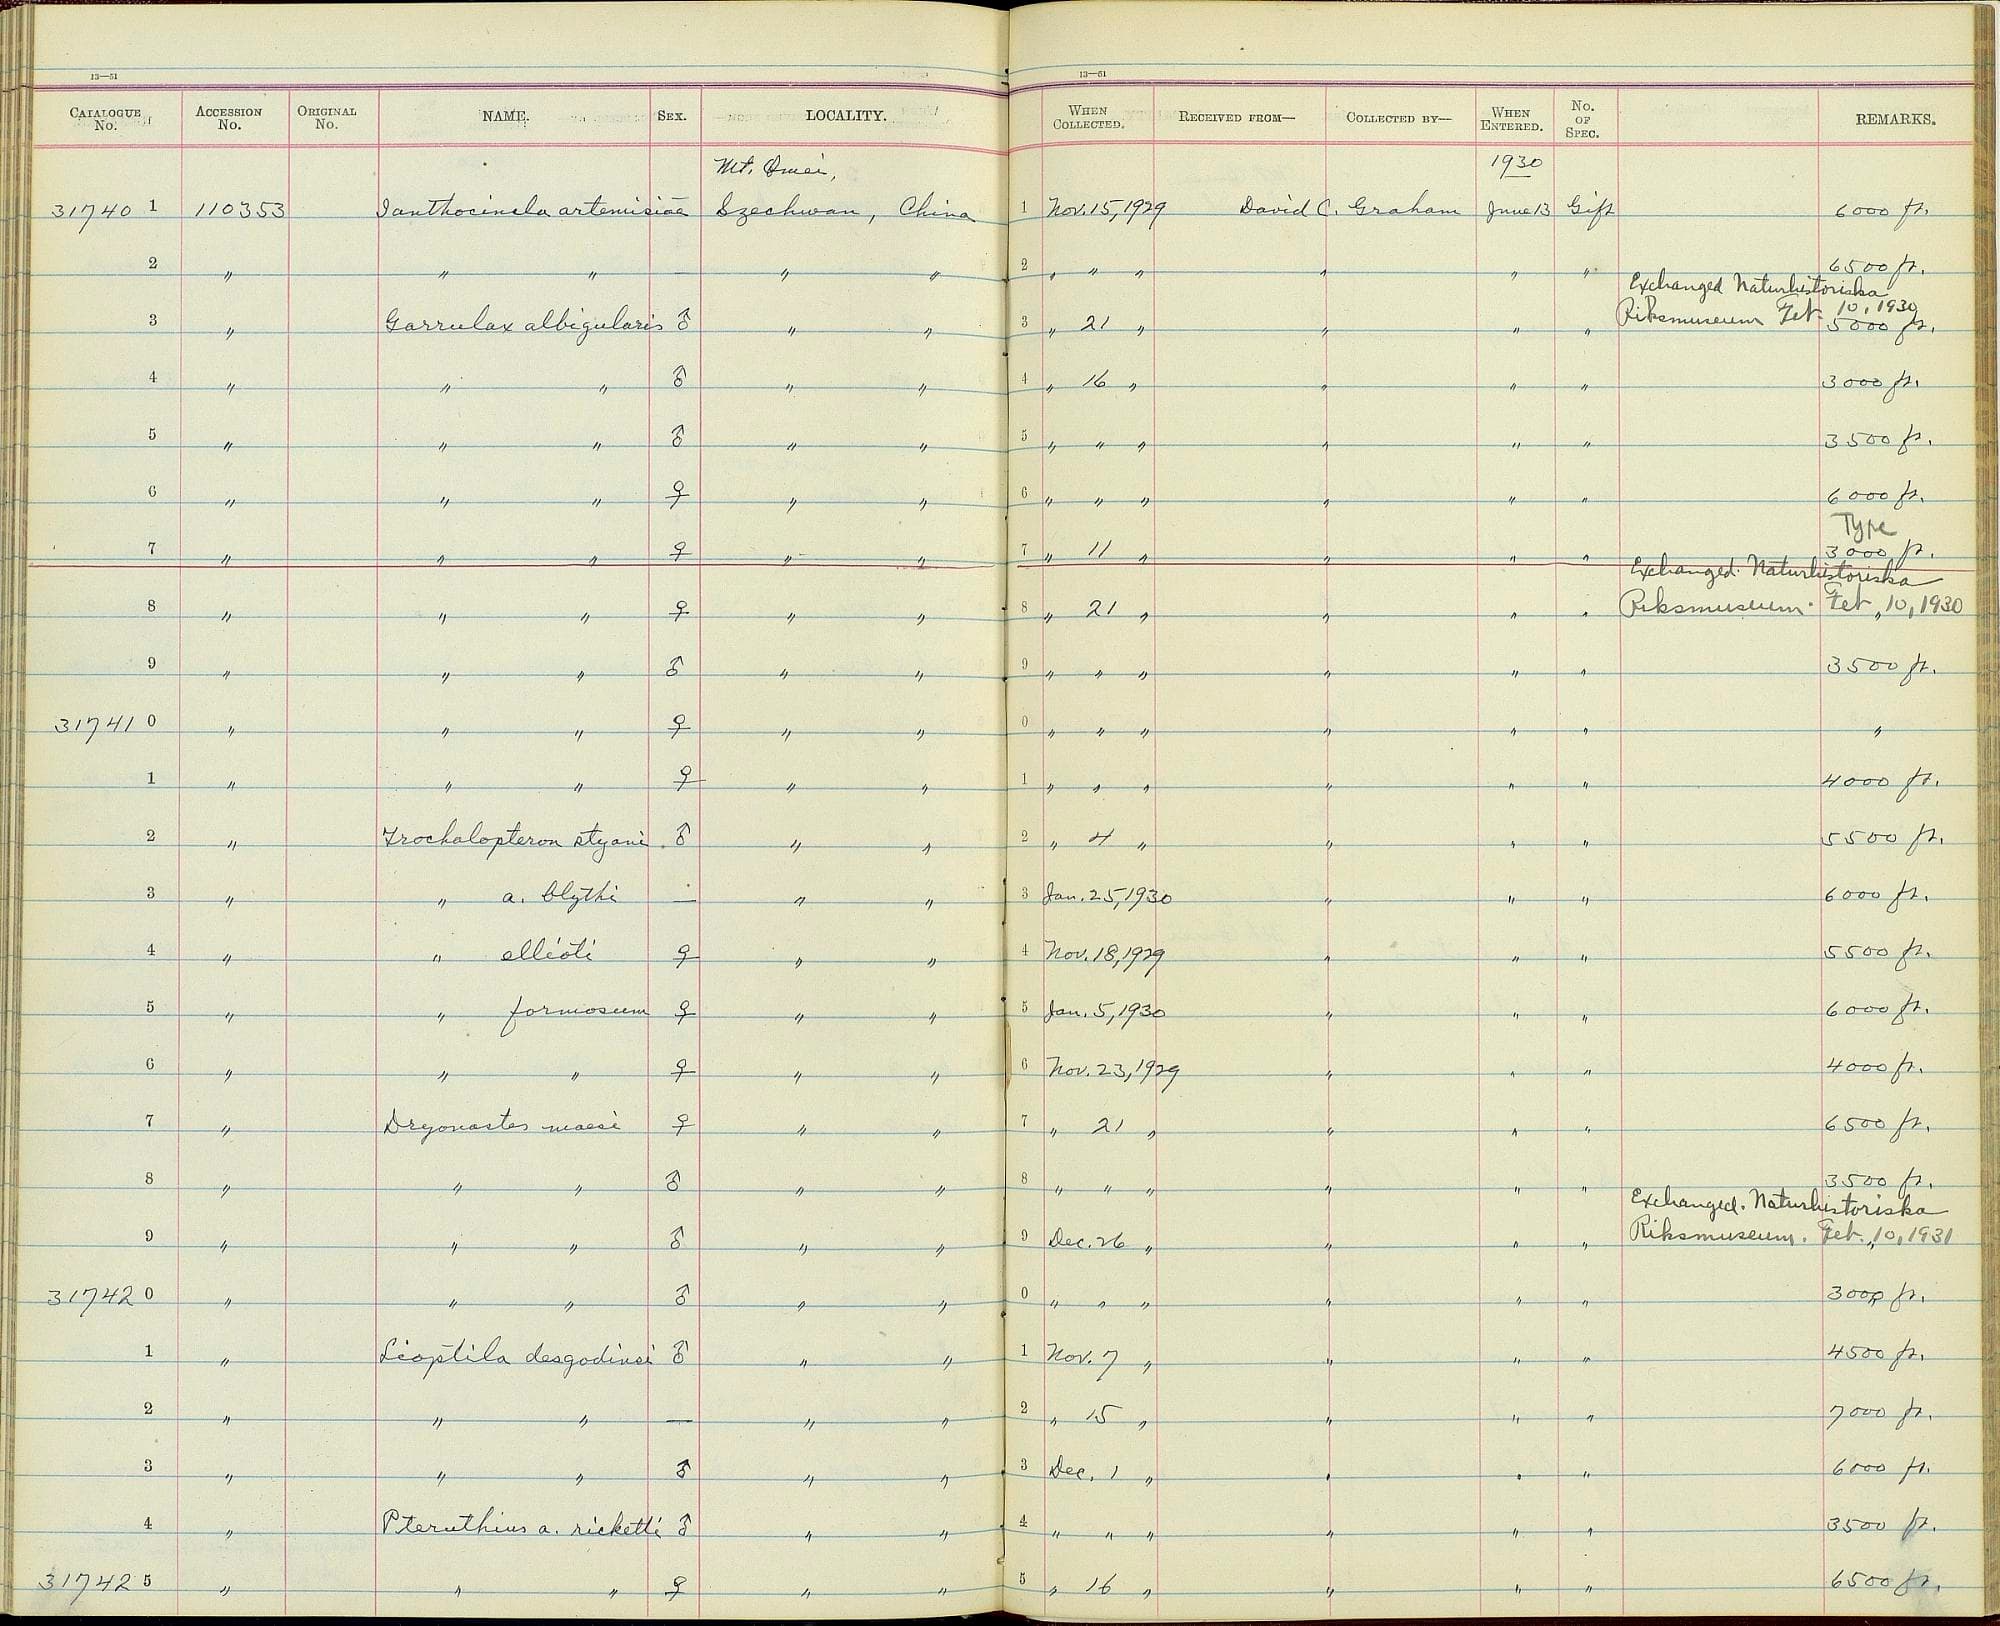 13—51 13—51
CATALOGUE No. ACCESSION No. ORIGINAL No. NAME. SEX. LOCALITY. WHEN COLLECTED. RECEIVED FROM— COLLECTED BY— WHEN ENTERED. No. OF SPEC. REMARKS.
Mt. Omei, 1930
317401 110353 Ianthocincla artemisiae Szechwan, China 1 Nov. 15, 1929 David C. Graham June 13 Gift 6000 ft.
2 " " " — " " 2 " " " " " " 6500 ft.
Exchanged Naturhistoriska
Riksmuseum Feb. 10, 1930
3 " Garrulax albigularis ♂ " " 3 " 21 " " " " 5000 ft.
4 " " " ♂ " " 4 " 16 " " " " 3000 ft.
5 " " " ♂ " " 5 " " " " " " 3500 ft.
6 " " " ♀ " " 6 " " " " " " 6000 ft.
Type
7 " " " ♀ " " 7 " 11 " " " " 3000 ft.
Exchanged. Naturhistoriska
Riksmuseum. Feb. 10, 1930
8 " " " ♀ " " 8 " 21 " " " " "
9 " " " ♂ " " 9 " " " " " " 3500 ft.
317410 " " " ♀ " " 0 " " " " " " "
1 " " " ♀ " " 1 " " " " " " 4000 ft.
2 " Trochalopteron styani ♂ " " 2 " 4 " " " " 5500 ft.
3 " " a. blythi — " " 3 Jan. 25, 1930 " " " 6000 ft.
4 " " ellioti ♀ " " 4 Nov. 18, 1929 " " " 5500 ft.
5 " " formosum ♀ " " 5 Jan. 5, 1930 " " " 6000 ft.
6 " " " ♀ " " 6 Nov. 23, 1929 " " " 4000 ft.
7 " Dryonastes maesi ♀ " " 7 " 21 " " " " 6500 ft.
8 " " " ♂ " " 8 " " " " " " 3500 ft.
Exchanged. Naturhistoriska
Riksmuseum. Feb. 10, 1931
9 " " " ♂ " " 9 Dec. 26 " " " " "
317420 " " " ♂ " " 0 " " " " " " 3000 ft.
1 " Lioptila desgodinsi ♂ " " 1 Nov. 7 " " " " 4500 ft.
2 " " " — " " 2 " 15 " " " " 7000 ft.
3 " " " ♂ " " 3 Dec. 1 " " " " 6000 ft.
4 " Pteruthius a. ricketti ♂ " " 4 " " " " " " 3500 ft.
317425 " " " ♀ " " 5 " 16 " " " " 6500 ft.